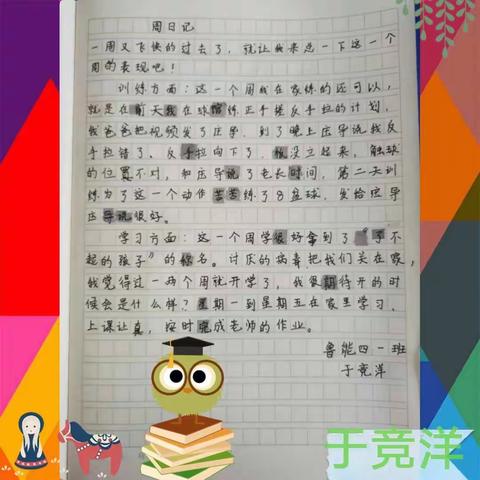 周日记
一周又飞快的过去了，就让我来总一下这一个
周的表现吧！
训练方面：这一个周我在家练的还可以，
就是在前天我在球馆练正手搓反手拉的计划，
我爸爸把视频发了庄导，到了晚上庄导说我反
手拉错了、反手拉向下了，板没立起来，触球
的位置不对，和庄导说了老长时间，第二天训
练为了这一个动作苦苦练了8盆球，发给庄导
庄导说很好。
学习方面：这一个周学很好拿到了“了不
起的孩子”的称名。讨厌的病毒把我们关在家，
我觉得过一两个周就开学了，我很期待开的时
候会是什么样？星期一到星期五在家里学习，
上课认真，按时完成老师的作业。
鲁能四一班
于竞洋
于竞洋